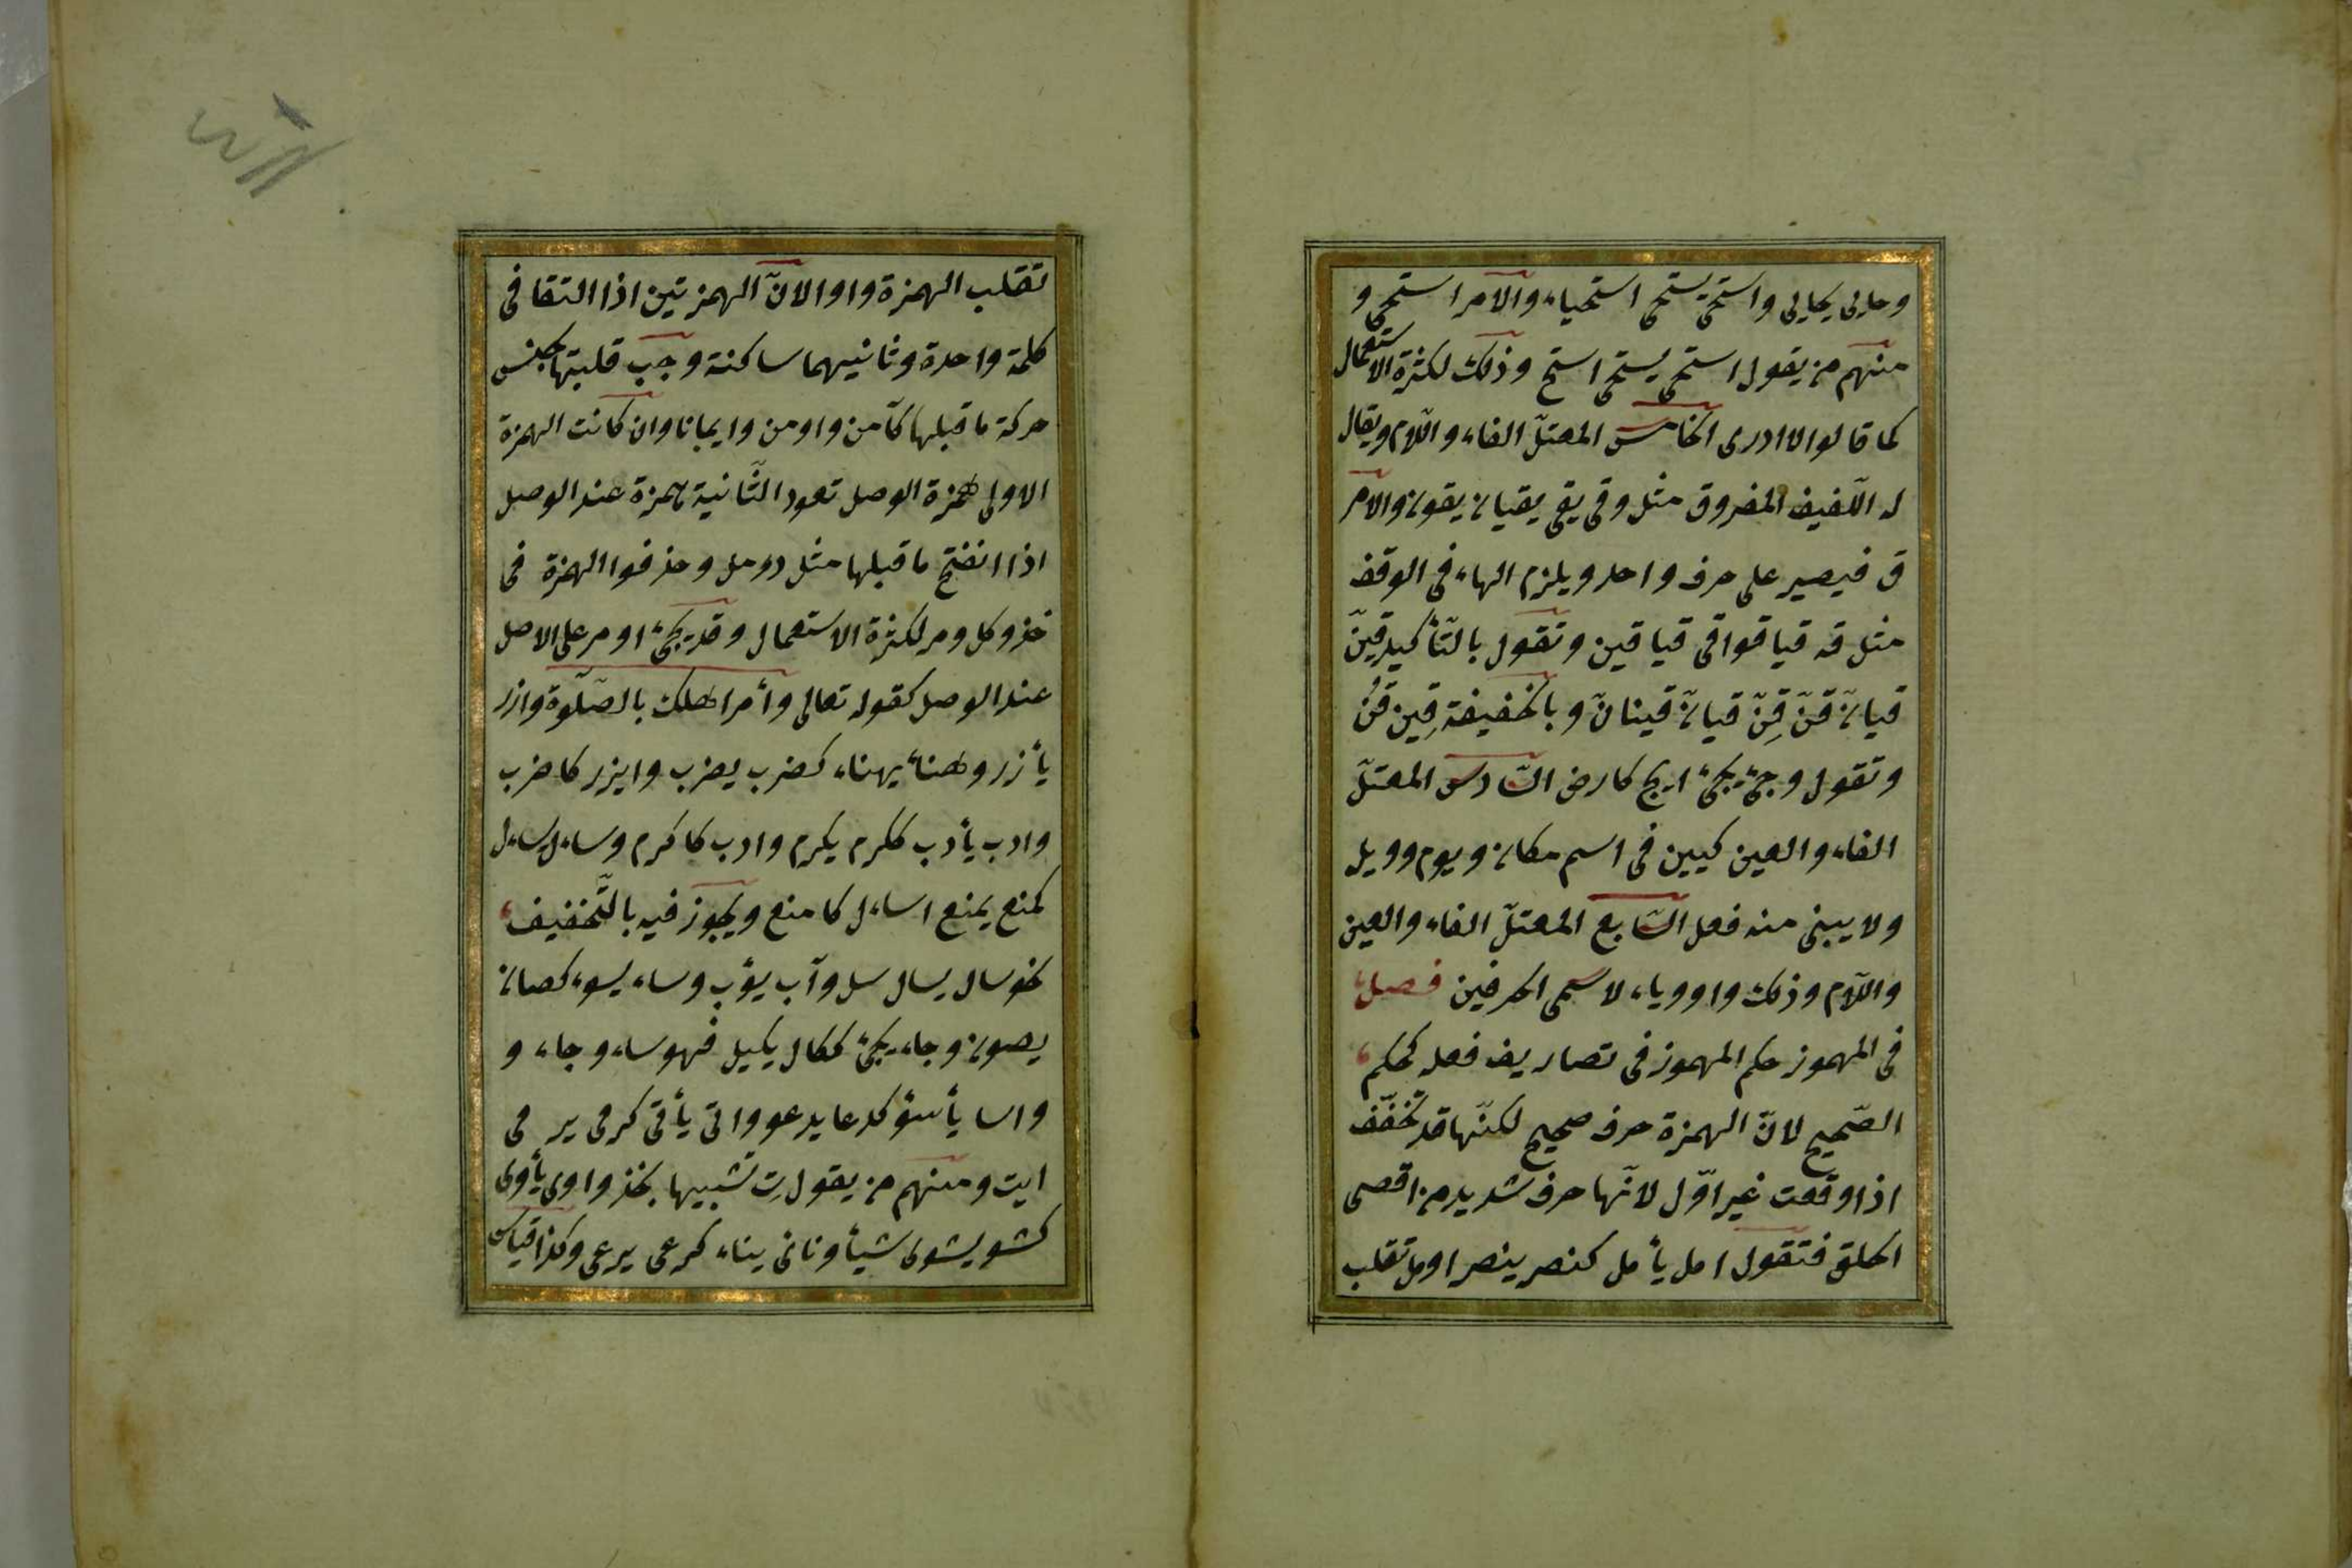 وحايى يحايى واستحيى يستحيى استحياء والامر استحيى و
منهم من يقول استحى يستحى استح وذلك لكثرة الاستعمال
كما قالوا لا ادرى الخامس المعتلّ الفاء واللّام ويقال
له اللّفيف المفروق مثل وقى يقى يقيان يقون والامر
ق فيصير على حرف واحد ويلزم الهاء فى الوقف
مثل قه قيا قوا قى قيا قين وتقول بالتّأكيد قينّ
قيانّ قنّ قِنّ قيانّ قينانّ وبالخفيفة قِين قُن
وتقول وجئ يجئ ايج كارض السّادس المعتلّ
الفاء والعين كيين فى اسم مكان ويوم وويل
ولا يبنى منه فعل السّابع المعتلّ الفاء والعين
واللّام وذلك واو وياء لاسمى الحرفين فصل
فى المهموز حكم المهموز فى تصاريف فعله كحكم
الصّحيح لانّ الهمزة حرف صحيح لكنّها قد تخفّف
اذا وقعت غير اوّل لانّها حرف شديد من اقصى
الحلق فتقول امل يأمل كنصر ينصر اومل تقلب
تقلب الهمزة واوا لانّ الهمزتين اذا التقا فى
كلمة واحدة وثانيهما ساكنة وجب قلبتها بجنس
حركة ما قبلها كآمن واومن وايمانا وان كانت الهمزة
الاولى همزة الوصل تعود الثّانية همزة عند الوصل
اذا انفتح ما قبلها مثل دومل وحذفوا الهمزة فى
خذ وكل ومر لكثرة الاستعمال وقد يجئ اومر على الاصل
عند الوصل كقوله تعالى وأمر اهلك بالصّلوة وازر
يأزر وهنأ يهناء كضرب يضرب وايزر كاضرب
وادب يأدب ككرم يكرم وادب كاكرم وساءل يساءل
كمنع يمنع اساءل كامنع ويجوز فيه بالتّخفيف
نحو سال يسال سل وآب يؤب وساء يسوء كصان
يصون وجاء يجئ ككال يكيل فهو ساء وجاء و
واسا يأسؤ كدعا يدعو واتى يأتى كرمى يرمى
ايت ومنهم من يقول تِ تشبيها بخذ واوى يأوى
كشو يشوى شيأ ونانى يناء كرعى يرعى وكذا قياس